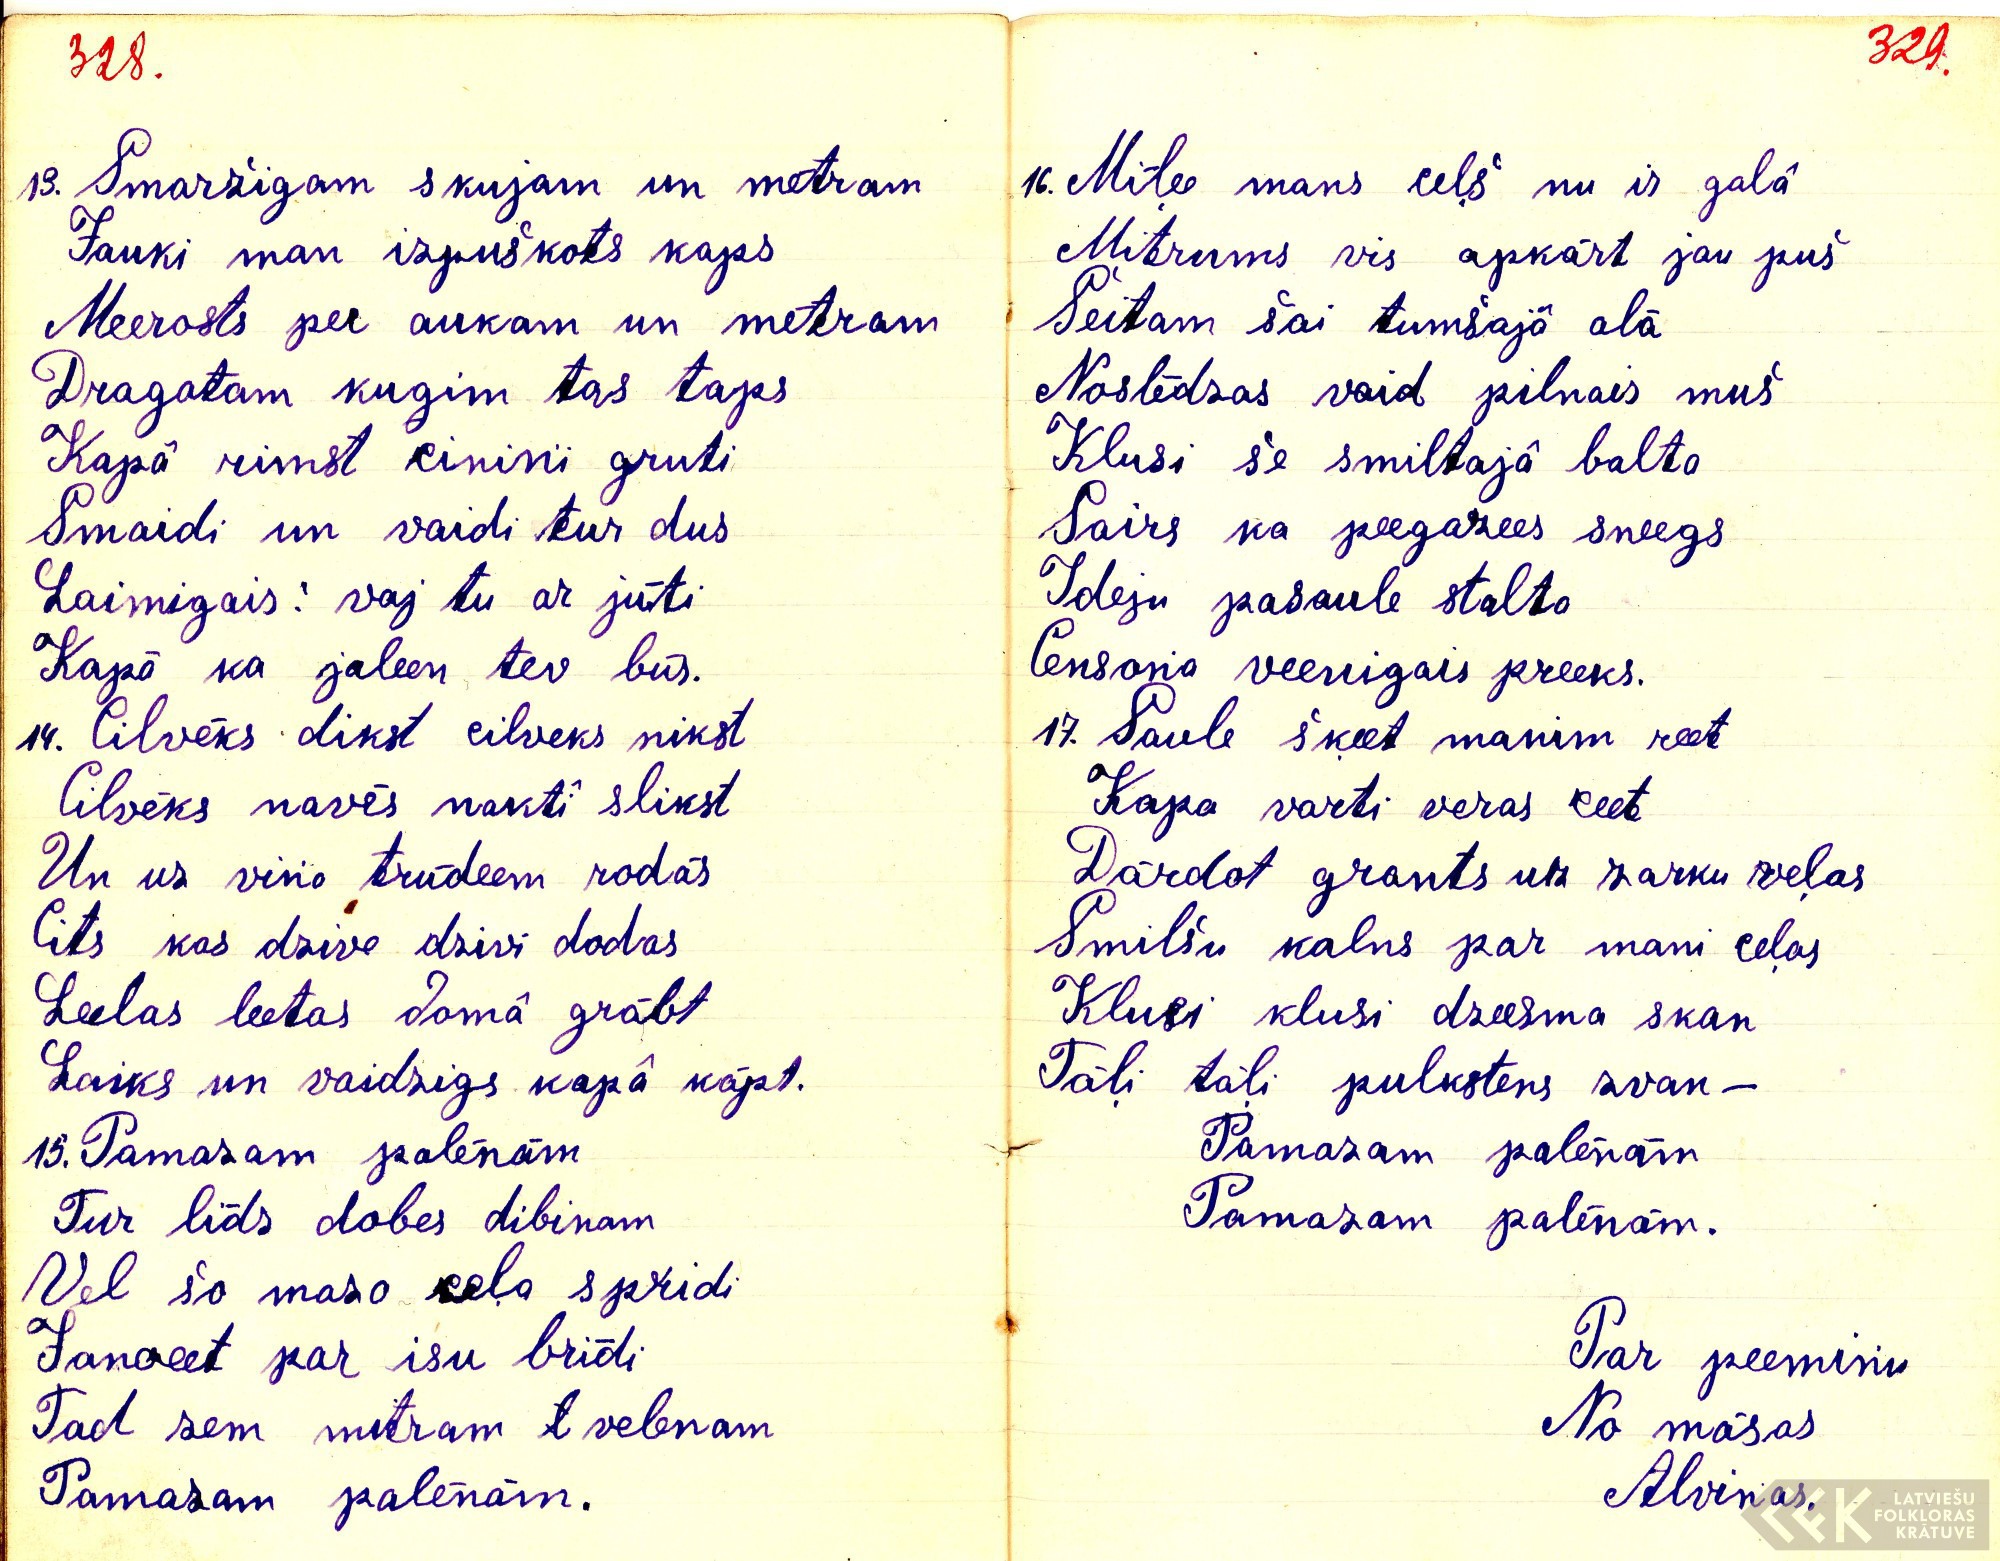 328.
13. Smaržigam skujam un metram
Jauki man izpuškots kaps
Meerosts pee aukam un metram
Dragatam kugim tas taps
Kapâ rimst cinini gruti
Smaidi un vaidi tur dus
Laimigais: vaj tu ar jūti
Kapā ka jaleen tev būs.
14. Cilvēks dikst cilveks nikst
Cilvēks navēs naktî slikst
Un uz vina trūdeem rodās
Cits kas dzive dzivi dodas
Leelas leetas domâ grābt
Laiks un vaidzigs kapâ kāpt.
15. Pamazam palēnām
Tur līdz dobes dibinam
Vel šo mazo ceļa spridi
Janoeet par isu brīdi
Tad zem mitram t velenam
Pamazam palēnām.
329.
16. Miļee mans ceļš nu ir galâ
Mitrums vis apkārt jau puš
Šeitam šai tumšajâ alā
Noslēdzas vaid pilnais muš
Klusi še smiltajâ balta
Sairs ka peegazees sneegs
Ideju pasaule stalta
Censoņa veenigais preeks.
17. Saule šķeet manim reet
Kapa varti veras ceet
Dārdot grants uz zarku veļas
Smilšu kalns par mani ceļas
Klusi klusi dzeesma skan
Tāļi tāļi pulkstens zvan –
Pamazam palēnām
Pamazam palēnām.
Par peeminu
No māsas
Alvinas.
LATVIEŠU
FOLKLORAS
KRĀTUVE